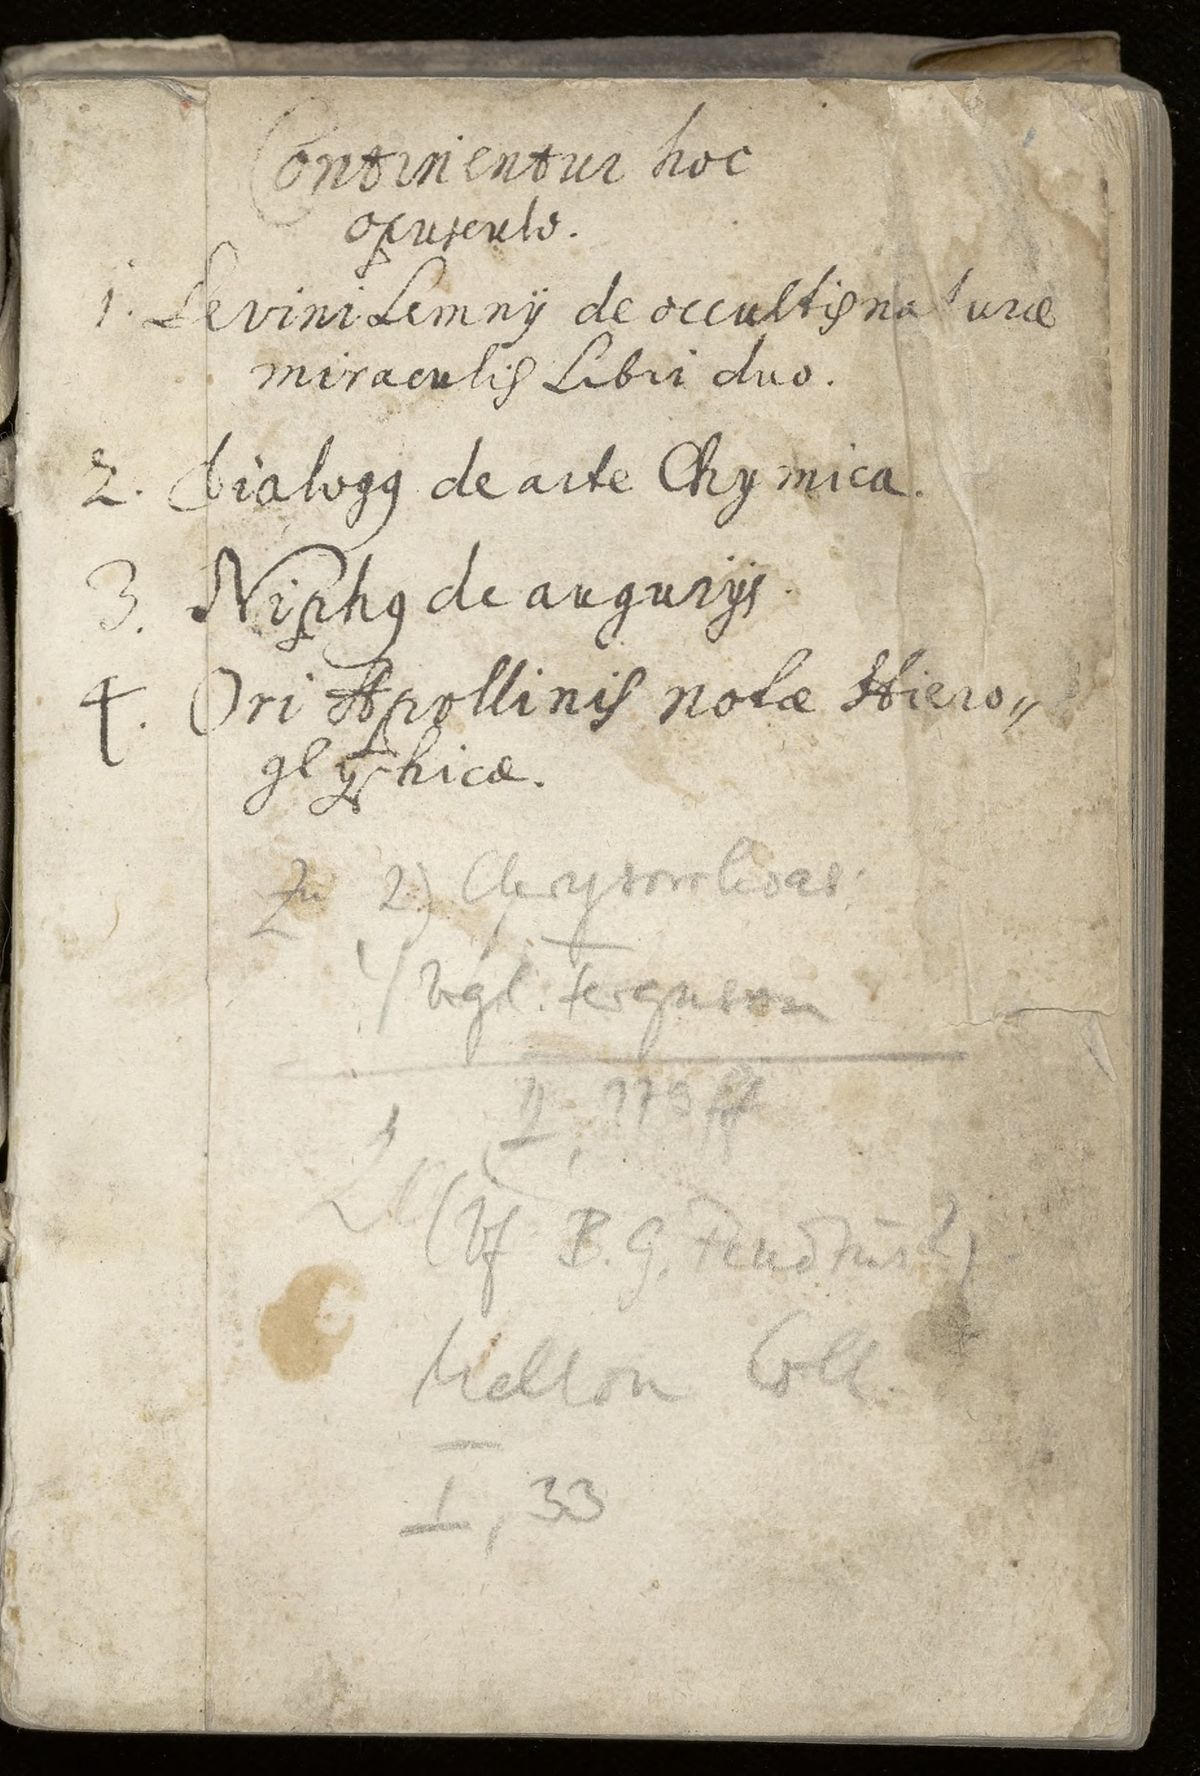 Continentur hoc
opusculo.
1. Levini Lemnij de occultis naturæ
miraculis Libri duo.
2. Dialogꝰ de arte Chymica.
3. Niphꝰ de augurijs.
4. Ori Apollinis notæ Hiero„
glyphicæ.
Zu 2)
Vgl. Ferguson
II,
(Vf B. G.
Mellon Coll.
I, 33